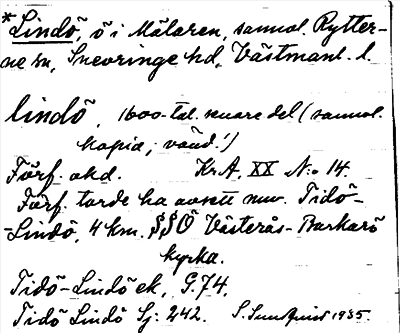 *Lindö, ö i Mälaren, sannol. Rytter-
ne sn, Snevringe hd, Västmanl. l.
lindö, 1600-tal. senare del (sannol.
kopia; vänd!)
Förf. okd. Kr.A. XX N:o 14.
Förf. torde ha avsett nuv. Tidö-
-Lindö, 4 km. SSÖ Västerås-Barkarö
kyrka.
Tidö-Lindö ek, G.74.
Tidö Lindö Lj: 242. S. 1935.